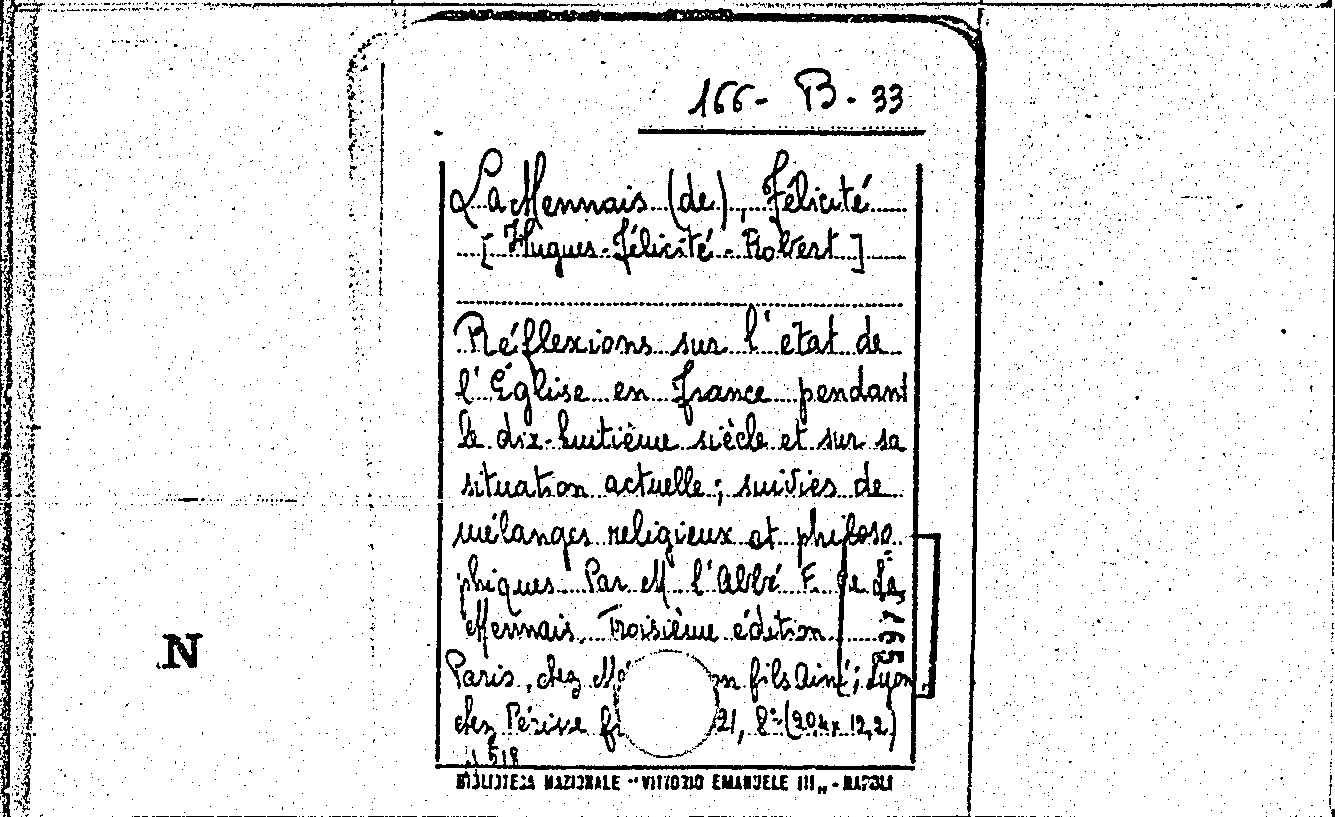 166- B. 33
La Mennais (de), Félicité
[Hugues-Félicité-Robert]
Réflexions sur l'état de
l'Église en France pendant
le dix-huitième siècle et sur sa
situation actuelle; suivies de
mélanges religieux et philoso
phiques. Par M l'Abbé F. de La
Mennais. Troisième édition
Paris, chez Mé on fils Ainé; Lyon,
chez Périsse 21, 8° (20,4x12,2)
518
BIBLIOTECA NAZIONALE "VITTORIO EMANUELE III" - NAPOLI
N